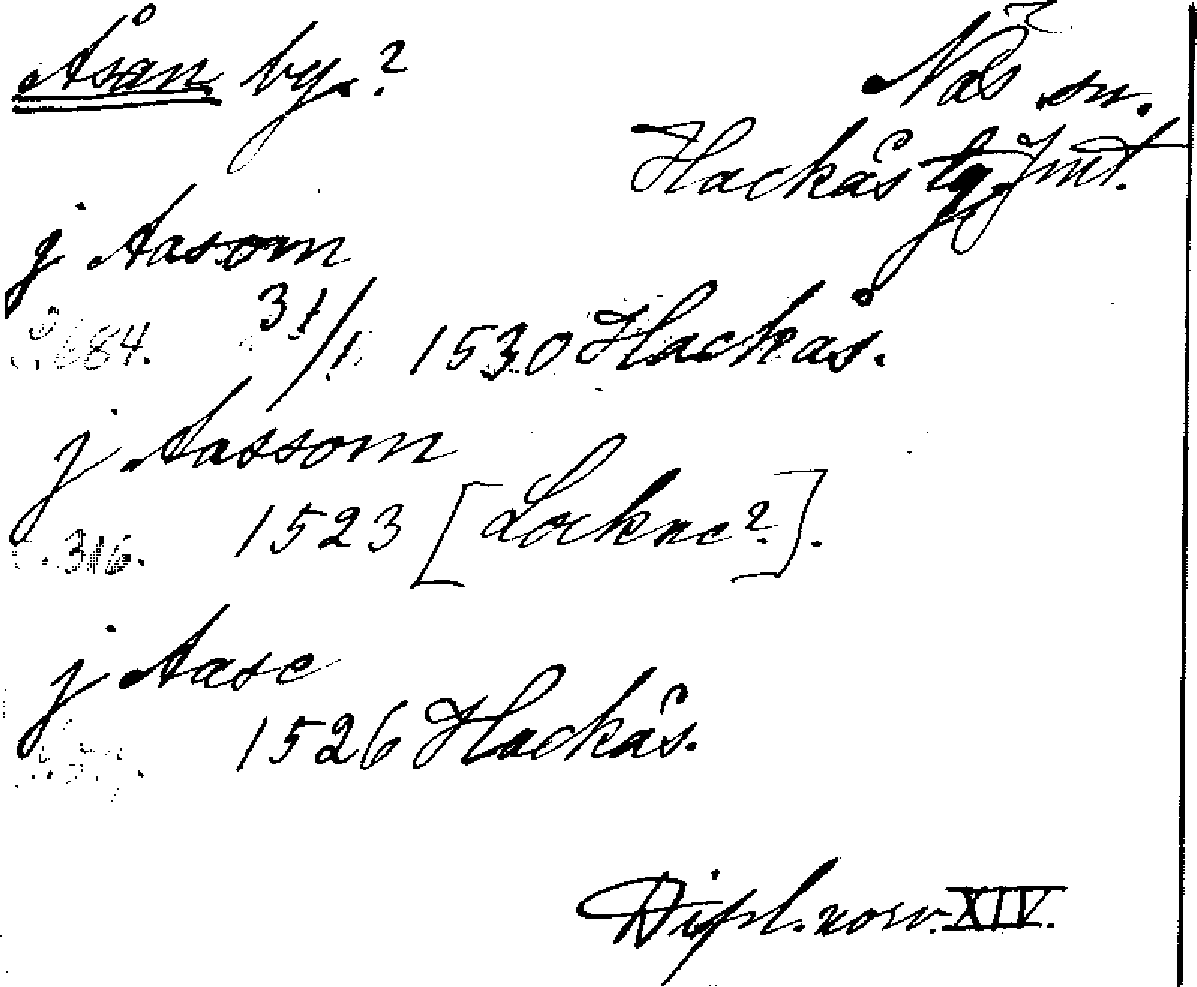 Åsan by.?
Näs sn.
Hackås tg. Jmt.
j Aasom
S. 684. 31/1 1530 Hackås.
j Aassom
S. 316. 1523 [Lockne?].
j Aase
1526 Hackås.
Dipl. norv. XIV.